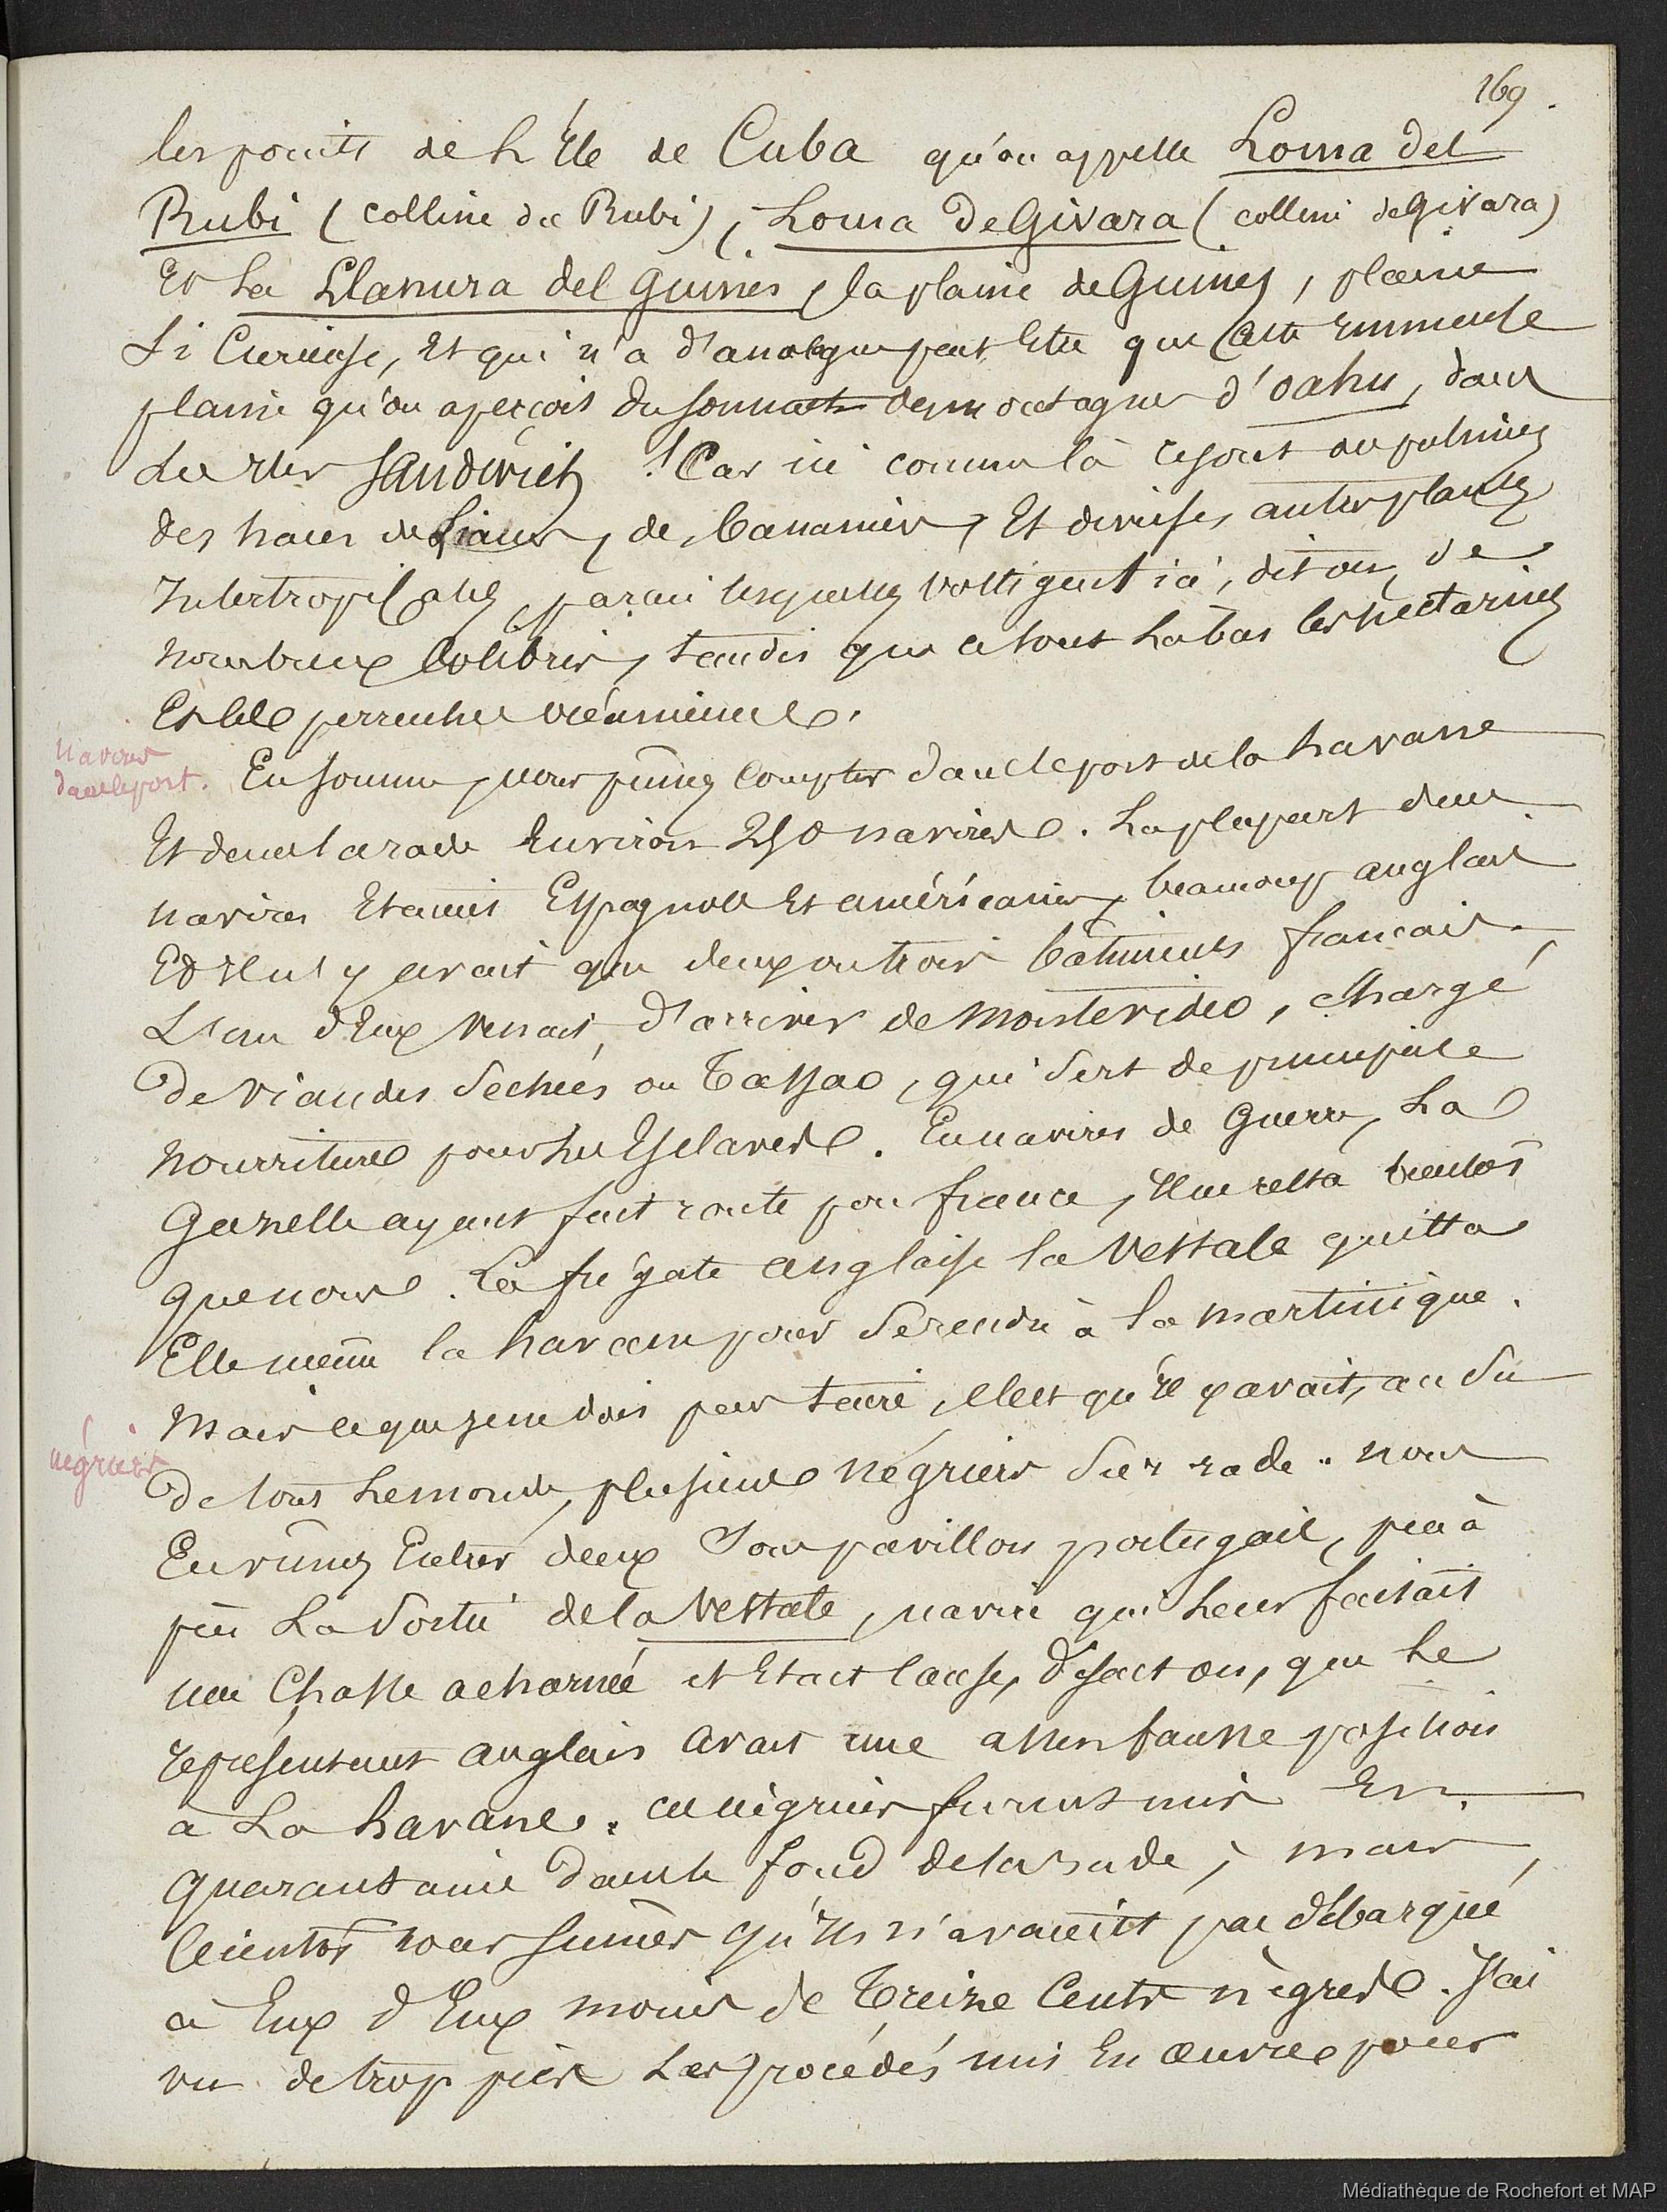 169.
les points de L'Ile de Cuba qu'on appelle Loma del
Rubi (colline du Rubi), Loma de Givara (colline de Givara)
Et La Llanura del Guines, la plaine de Guines, plaine
Si Curieuse, Et qui n'a d'analogue peut Etre que Cette Immense
plaine qu'on aperçoit du sommet des montagnes d'oahu, dans
Les Iles Sandwich ! Car ici comme là ce sont
des haies de Lianes, de bananiers, Et diverses autres plantes
Intertropicales, parmi lesquelles voltigent ici, dit on, de
nombreux Colibris, tandis que ce sont La bas les nectarines
Et les perruches
navires
dans le port.
En somme, nous pûmes Compter dans le port de la havane
Et dans la rade Environ 250 navires. La plupart des
navires Etaient Espagnols Et américains, beaucoup anglais
Et Il n'y avait que deux ou trois bâtiments français.
L'un d'Eux venait d'arriver de Montevideo, chargé
De viandes Séchées ou Tassao, qui Sert de principale
nourriture pour Les Esclaves. En navires de Guerre, La
Gazelle ayant fait route pour france, Il ne resta bientôt
que nous. La frégate anglaise la Vestale quitta
Elle même la havane pour Se rendre à la martinique.
négriers
Mais ce que je ne dois pas taire, c'est qu'Il y avait, au Su
De tout Le monde, plusieurs négriers Sur rade. nous
En vîmes Entrer deux Sous pavillon portugais, peu à
peu La Sortie de la Vestale, navire qui Leur faisait
une Chasse acharnée et Etait Cause, disait on, que Le
représentant anglais avait une assez fausse position
à La havane. Ces négriers furent mis En
quarantaine dans le fond de la rade, mais,
bientôt nous sumes qu'Ils n'avaient pas débarqué
à Eux d'Eux moins de Treize Cents nègres. J'ai
vu de trop près Les procédés mis En œuvre pour
Médiathèque de Rochefort et MAP